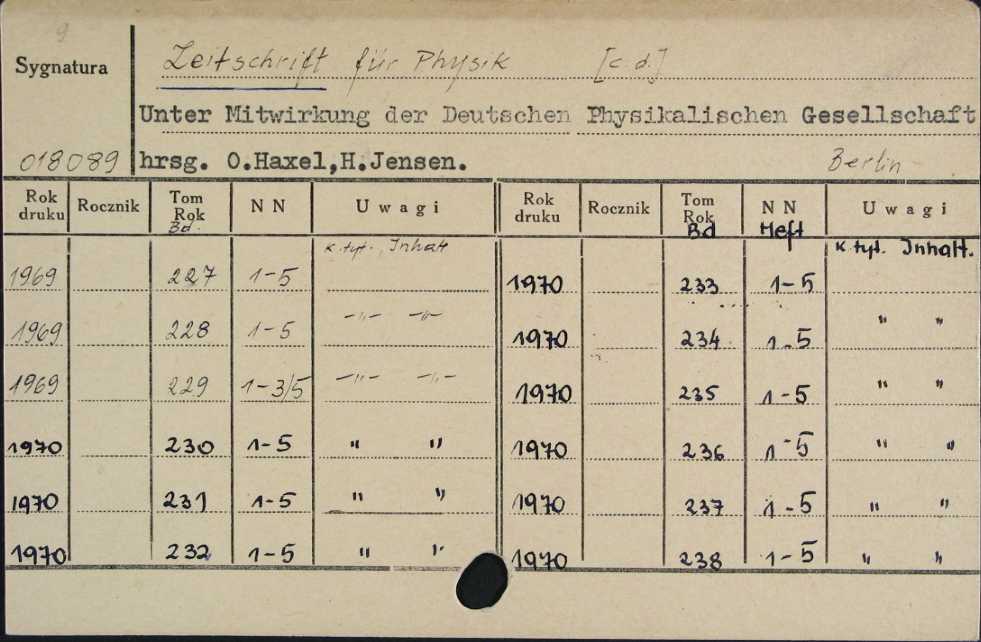 9
Sygnatura Zeitschrift für Physik [c.d.]
Unter Mitwirkung der Deutschen Physikalischen Gesellschaft
018089 hrsg. O.Haxel,H.Jensen. Berlin
Rok druku Rocznik Tom Rok Bd. N N Uwagi Rok druku Rocznik Tom Rok Bd N N Heft Uwagi
k. tyt. Inhalt k. tyt. Inhalt.
1969 227 1-5 1970 233 1-5
1969 228 1-5 -"- -"- 1970 234 1-5 " "
1969 229 1-3/5 -"- -"- 1970 235 1-5 " "
1970 230 1-5 " " 1970 236 1-5 " "
1970 231 1-5 " " 1970 237 1-5 " "
1970 232 1-5 " " 1970 238 1-5 " "